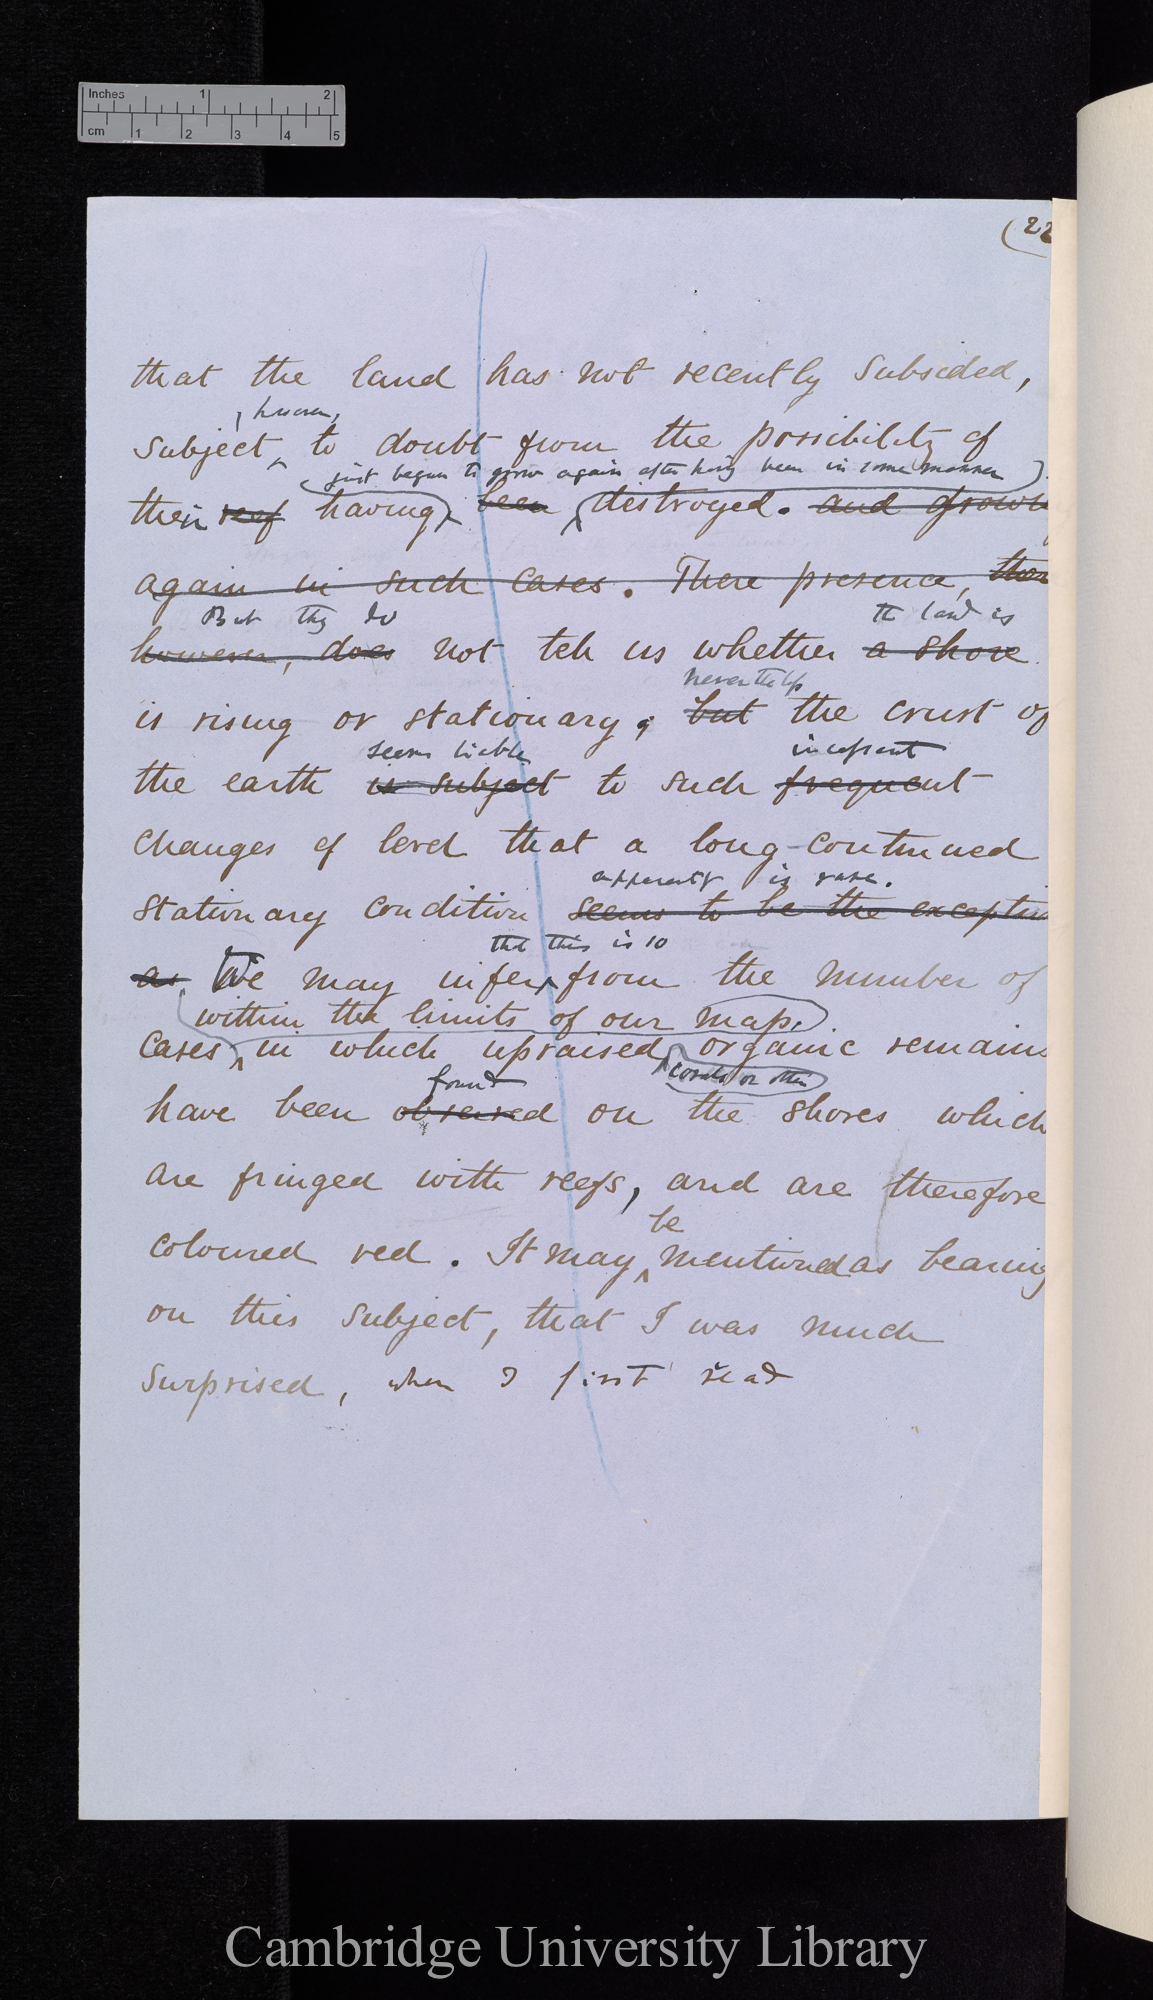 Inches 1 2
cm 1 2 3 4 5
(22
that the land has not recently subsided,
, however,
subject to doubt from the possibility of
just begun to grow again after having been in some manner
their reef having been destroyed. and grown
again in such cases. There presence,
But they do
the land is
however, does not tell us whether a shore
nevertheless
is rising or stationary; but the crust of
seems liable
incessant
the earth is subject to such frequent
changes of level that a long-continued
apparently is rare.
stationary condition seems to be the exception
that this is so
as We may infer from the number of
within the limits of our map,
cases in which upraised organic remains
corals or other
found
have been observed on the shores which
are fringed with reefs, and are therefore
be
coloured red. It may mentioned as bearing
on this subject, that I was much
surprised, when I first read
Cambridge University Library